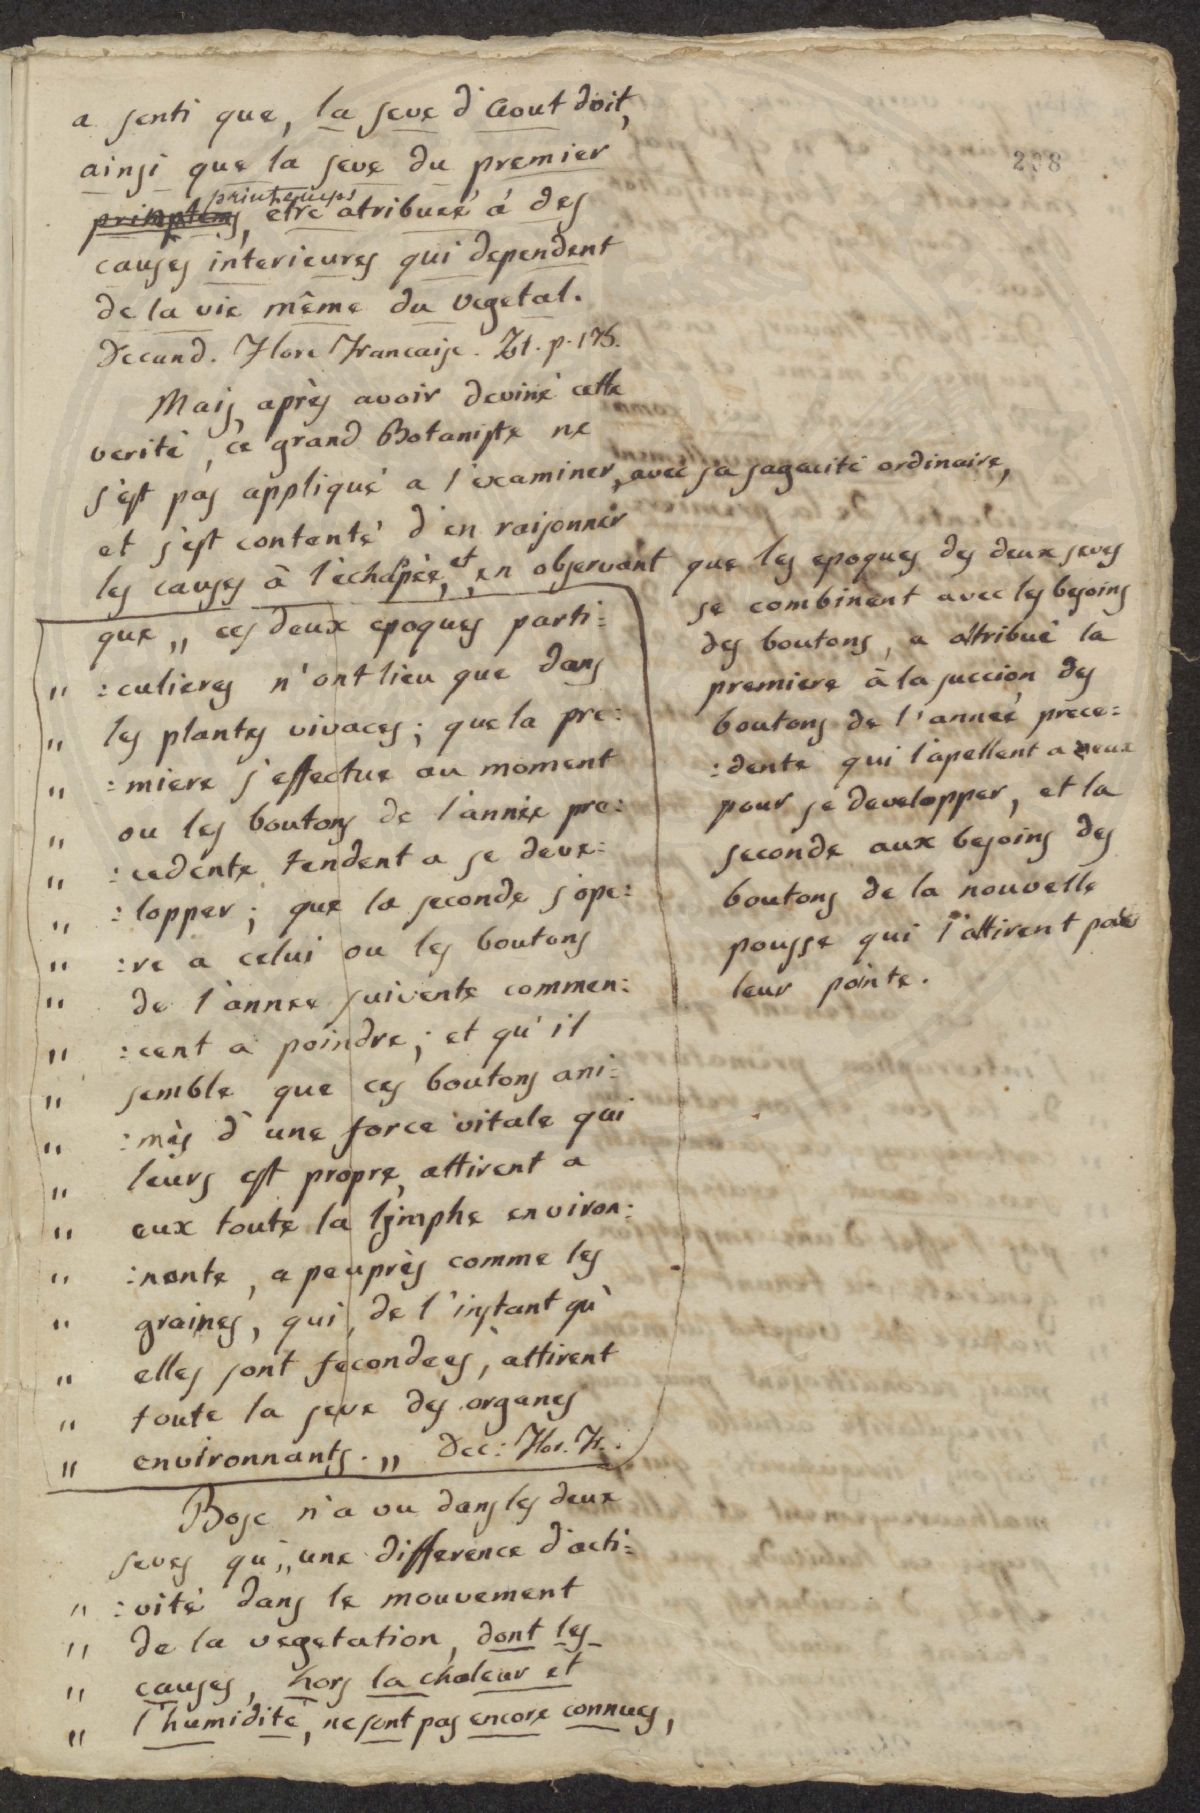 208
a senti que, la seve d'Aout doit,
ainsi que la seve du premier
printemps
primptems, etre atribueé à des
causes interieures qui dependent
de la vie même du vegetal.
Decand. Flore Francaise. T 1. p. 175.
Mais, après avoir deviné cette
verité, ce grand Botaniste ne
s'est pas appliqué a l'examiner, avec sa sagacité ordinaire,
et s'est contenté d'en raisonner
les causes à l'échapèe, et, en observant que les epoques des deux seves
se combinent avec les besoins
des boutons, a attribué la
premiere à la succion des
boutons de l'anneé prece:
:dente qui l'apellent a eux
pour se developper, et la
seconde aux besoins des
boutons de la nouvelle
pousse qui l'attirent par
leur pointe.
que ,, ces deux epoques parti:
,, :culieres n'ont lieu que dans
,, les plantes vivaces; que la pre:
,, :miere s'effectue au moment
,, ou les boutons de l'année pre:
,, :cedente tendent a se deve:
,, :lopper; que la seconde s'ope:
,, :re a celui ou les boutons
,, de l'annee suivente commen:
,, :cent a poindre; et qu'il
,, semble que ces boutons ani:
,, :més d'une force vitale qui
,, leurs est propre, attirent a
,, eux toute la lymphe environ:
,, :nante, a peuprès comme les
,, graines, qui, de l'instant qu'
,, elles sont fecondees, attirent
,, toute la seve des organes
,, environnants. ,, Dec: Flor. Fr..
Bosc n'a vu dans les deux
seves qu',, une difference d'acti:
,, :vité dans le mouvement
,, de la vegetation, dont les
,, causes, hors la chaleur et
,, l'humidité, ne sont pas encore connues,